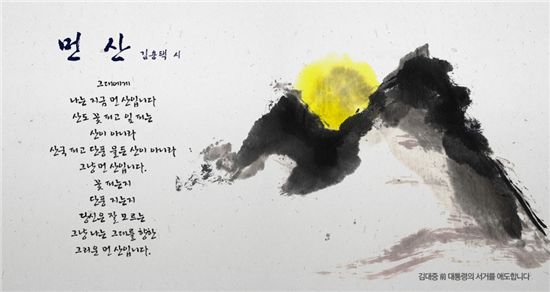 먼 산
김용택 시
그대에게
나는 지금 먼 산입니다
산도 꽃 피고 잎 피는
산이 아니라
산국 피고 단풍 물든 산이 아니라
그냥 먼 산입니다.
꽃 피는지
단풍 지는지
당신은 잘 모르는
그냥 나는 그대를 향한
그리운 먼 산입니다.
김대중 前 대통령의 서거를 애도합니다